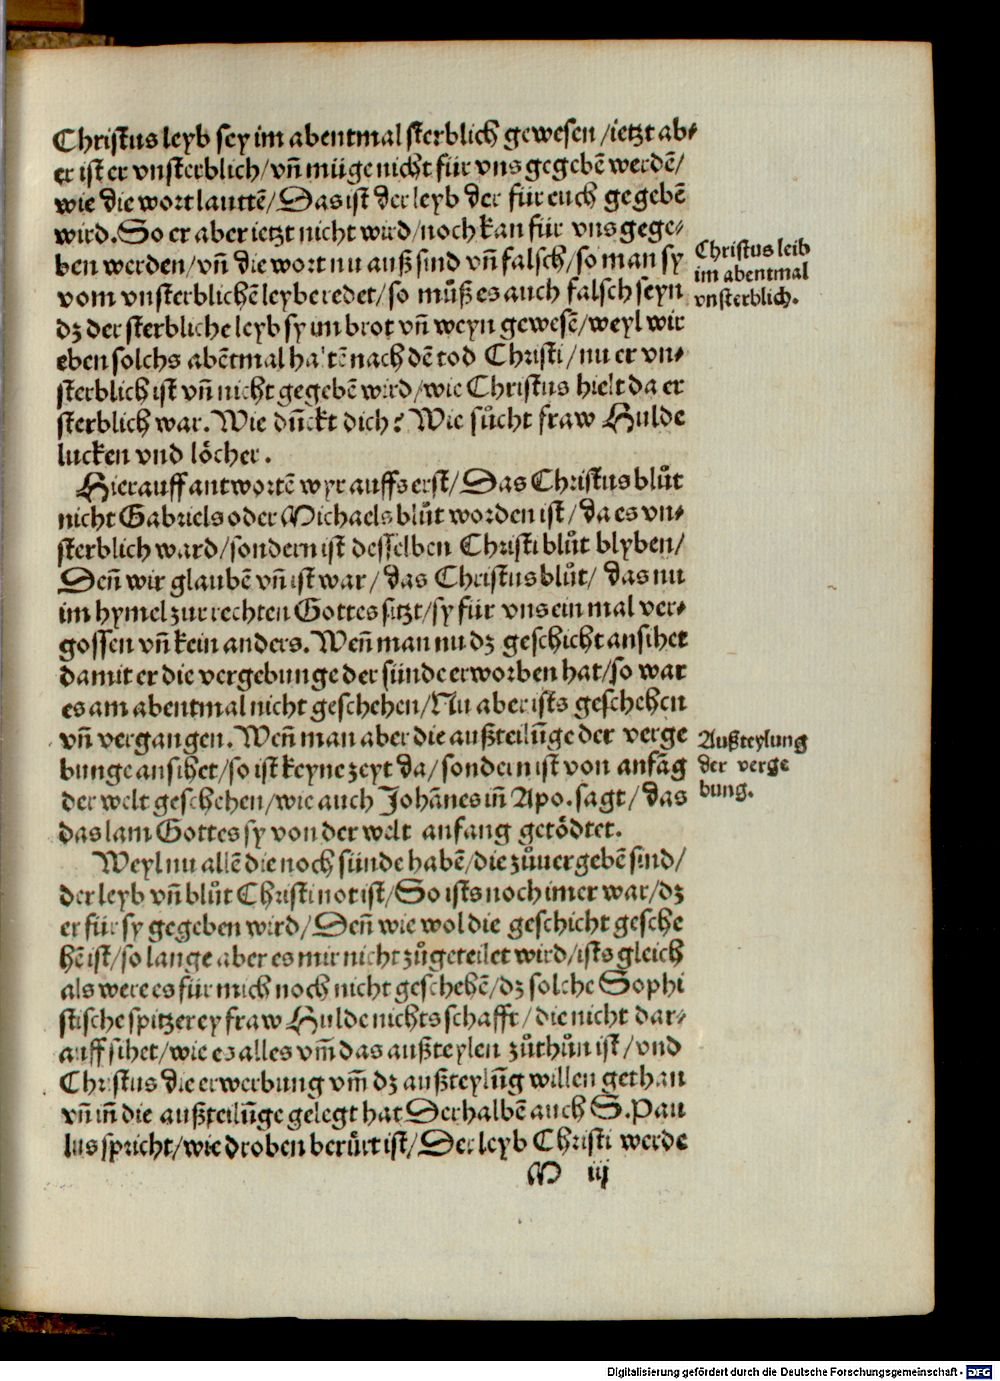 Christus leyb sey im abentmal sterblich gewesen/ietzt ab⸗
er ist er vnsterblich/vñ müge nicht für vns gegebẽ werdẽ/
wie die wort lauttẽ/Das ist der leyb der für euch gegebẽ
wird. So er aber ietzt nicht wird/noch kan für vns gege⸗
ben werden/vñ die wort nu auß sind vñ falsch/so man sy
vom vnsterblichẽ leybe redet/so můß es auch falsch seyn
dz der sterbliche leyb sy im brot vñ weyn gewesẽ/weyl wir
eben solchs abẽtmal haltẽ nach dẽ tod Christi/nu er vn⸗
sterblich ist vñ nicht gegebẽ wird/wie Christus hielt da er
sterblich war. Wie dũckt dich? Wie sůcht fraw Hulde
lucken vnd löcher.
Christus leib
im abentmal
vnsterblich.
Hierauff antwortẽ wyr auffs erst/Das Christus blůt
nicht Gabriels oder Michaels blůt worden ist/da es vn⸗
sterblich ward/sondern ist desselben Christi blůt blyben/
Deñ wir glaubẽ vñ ist war/das Christus blůt/das nu
im hymel zur rechten Gottes sitzt/sy für vns ein mal ver⸗
gossen vñ kein anders. Weñ man nu dz geschicht ansihet
damit er die vergebunge der sünde erworben hat/so war
es am abentmal nicht geschehen/Nu aber ists geschehen
vñ vergangen. Weñ man aber die außteilũge der verge
bunge ansihet/so ist keyne zeyt da/sondern ist von anfãg
der welt geschehen/wie auch Johãnes iñ Apo. sagt/das
das lam Gottes sy von der welt anfang getödtet.
Außteylung
der verge
bung.
Weyl nu allẽ die noch sünde habẽ/die zůuergebẽ sind/
der leyb vñ blůt Christi not ist/So ists noch imer war/dz
er für sy gegeben wird/Deñ wie wol die geschicht gesche
hẽ ist/so lange aber es mir nicht zůgeteilet wird/ists gleich
als were es für mich noch nicht geschehẽ/dz solche Sophi
stische spitzerey fraw Hulde nichts schafft/die nicht dar⸗
auff sihet/wie es alles vm̃ das außteylen zůthůn ist/vnd
Christus die erwerbung vm̃ dz außteylũg willen gethan
vñ iñ die außteilũge gelegt hat Derhalbẽ auch S. Pau
lus spricht/wie droben berürt ist/Der leyb Christi werde
M iij
Digitalisierung gefördert durch die Deutsche Forschungsgemeinschaft - DFG